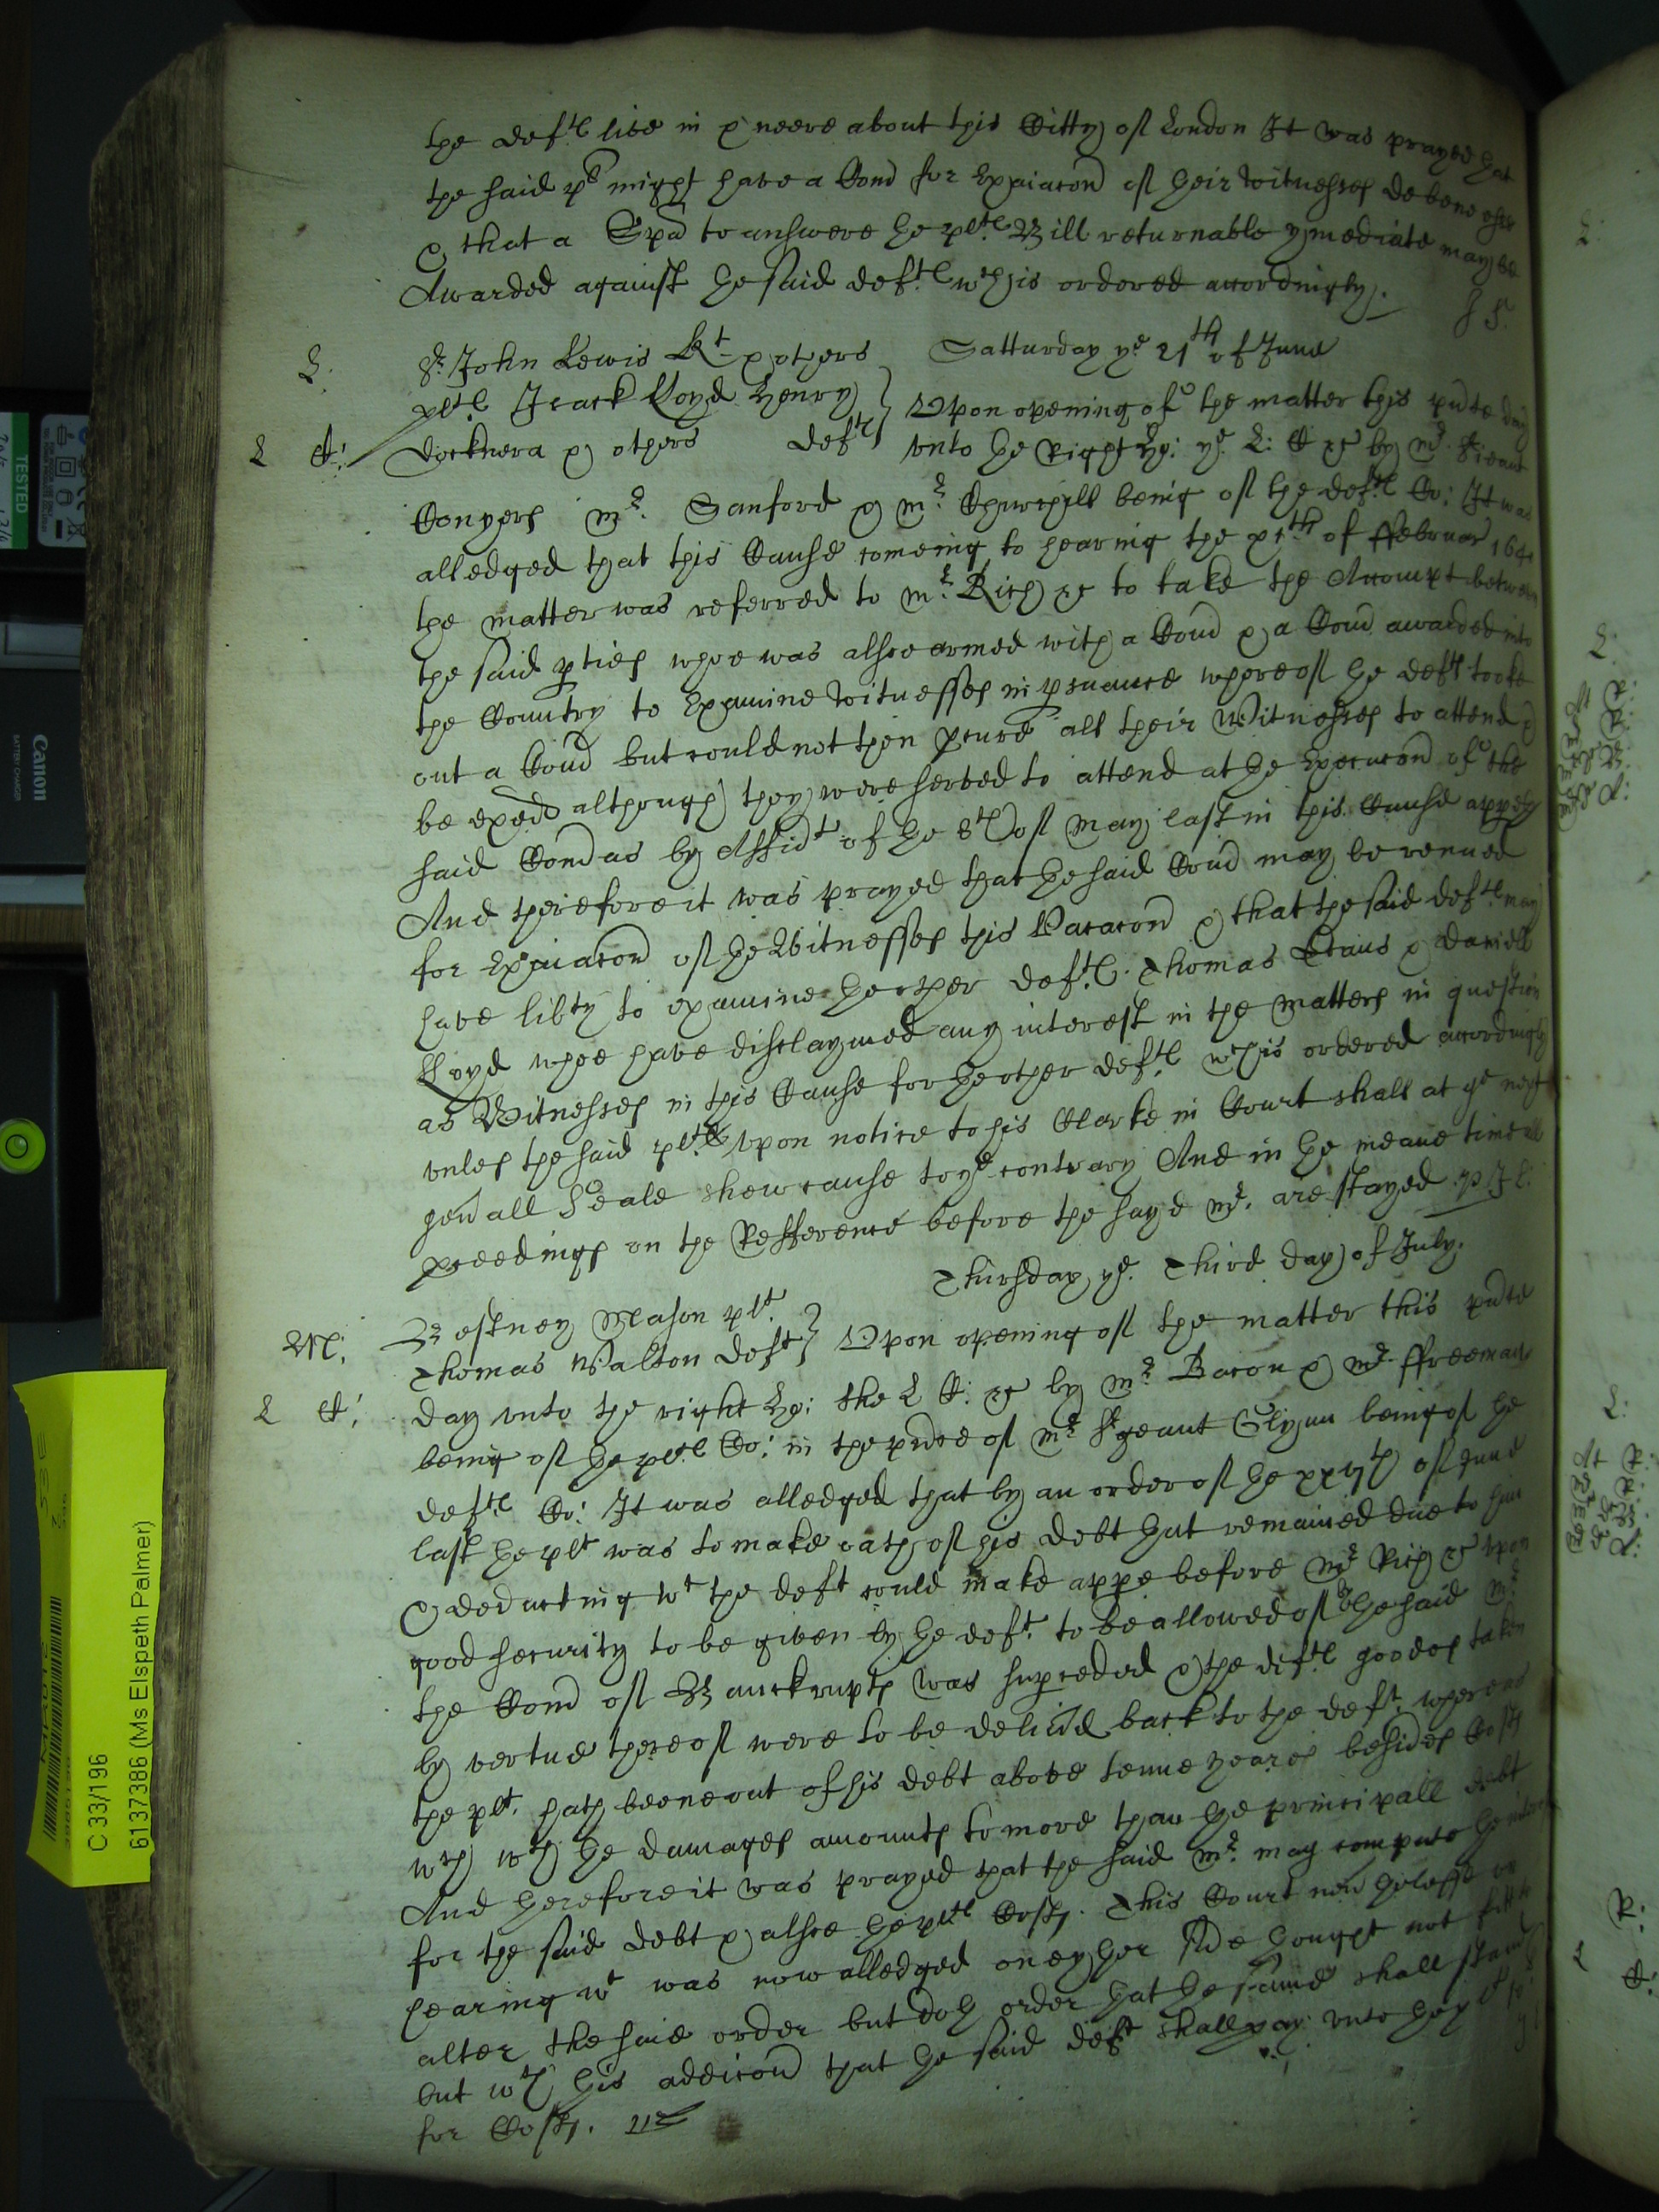 the deftℓ live in & neere about this Citty of London It was prayed that
the said pℓ might have a Com for Exaiacon of their witnesses de bene esse
& that a Spa to answere the pltℓ Bill returnable ymediate may be
Awarded against the said deftℓ wch is ordered accordingly.
Sr John Lewis Kt & others
Satturday ye 21th of June
L:
pltℓ Isaack Lloyd Henry
Vpon opening of the matter this pnte day
L C:
& others deftℓ
vnto the Right Ho: ye L: C &c by mr Sieant
Conyers mr Sanford & mr Churchill being of the deftℓ Co: It was
alledged that this Cause comeing to hearing the xith of ffebruar
the matter was referred to mr Rich &c to take the Accompt betweene
the said pties whoe was alsoe armed with a Comd & a Comd awarded into
the Country to Examine witnesses in psuance whereof the deftℓ tooke
out a Comd but could not then pcure all their Witnesses to attend &
be exed although they were served to attend at the Execucon of the
said Comd as by Affidt of the 8th of May last in this Cause appeth
And therefore it was prayed that the said Comd may be renued
for Exaiacon of the Witnesses this Vacacon & that the said deftℓ may
have libty to examine the other deftℓ Thomas Evans & Daniell
Lloyd whoe have disclaymed any interest in the matters in question
as Witnesses in this Cause for the other deftℓ wch is ordered accordingly
vnles the said pltℓ vpon notice to his Clarke in Court shall at ye next
genall Seale shew cause to ye contrary And in the meane time all
pceedings on the Refference before the sayd mr are stayed
Thursday ye Third day of July.
M:
Mason plt
Thomas Walton deft
Vpon opening of the matter this pnte
L C:
day vnto the right Ho: the L C: &c by mr Bacon & mr ffreeman
being of the pltℓ Co: in the pnce of mr Sergeant Glynn being of the
deftℓ Co: It was alledged that by an order of the xxvjth of June
last the plt was to make oath of his debt that remained due to him
& deducting wt the deft could make appe before mr Rich &c vpon
good security to be given by the deft to be allowed of by the said mr
the Comd of Banckrupts was supceded & the deftℓ goodes taken
by vertue thereof were to be delived back to the deft whereas
the plt hath beene out of his debt above tenne yeares besides Costs
wch wth the damages amounts to more than the principall debt
And therefore it was prayed that the said mr may compute the interest
for the said debt & alsoe the pltℓ Costs. This Court nevertheless on
hearing wt was now alledged on eyther side thought not fitt to
alter the said order but doth order that the same shall stand
but wth this addicon that the said deft shall pay vnto the plt
for Costs.
Canon
BATTERY CHARGER
TESTED
C 33/196
6137386 (Ms Elspeth Palmer)